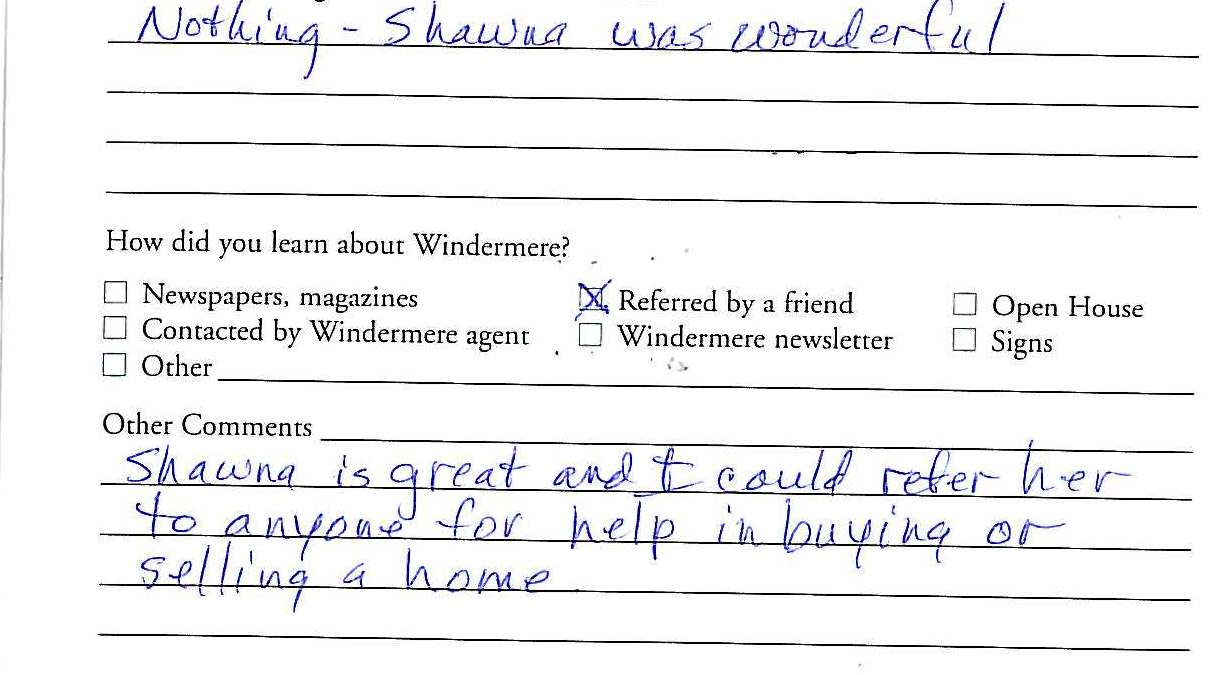 Nothing - Shawna was wonderful
How did you learn about Windermere?
☐ Newspapers, magazines ☒ Referred by a friend ☐ Open House
☐ Contacted by Windermere agent ☐ Windermere newsletter ☐ Signs
☐ Other
Other Comments
Shawna is great and I could refer her
to anyone for help in buying or
selling a home.